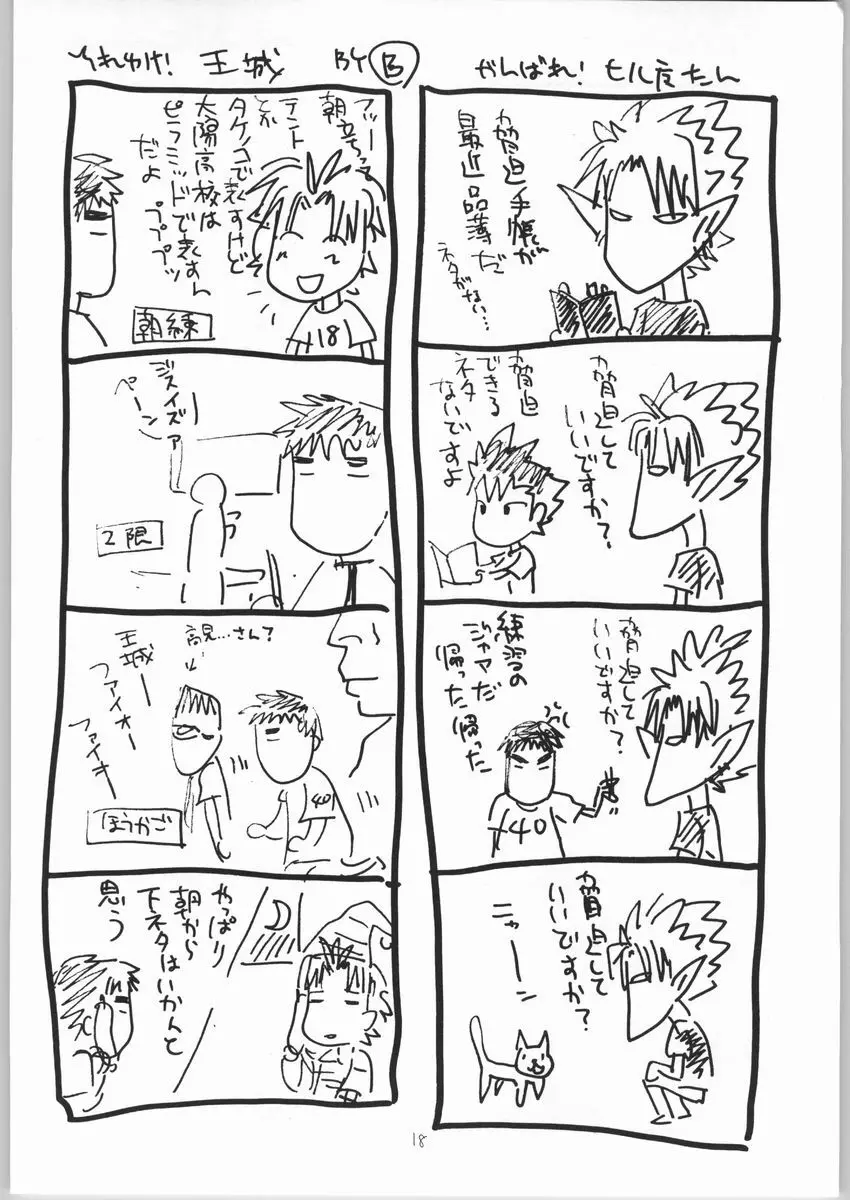 がんばれ！ヒル魔たん
脅迫手帳が
最近品薄だ
ネタがない…
脅迫して
いいですか？
脅迫
できる
ネタ
ないですよ
脅迫して
いいですか？
練習の
ジャマだ
帰った帰った
40
脅迫して
いいですか？
ニャーン
それゆけ！ 王城 BY B
朝立ちって
テント
とか
タケノコで表すけど
太陽高校は
ピラミッドで表すん
だよ
プププッ
18
朝練
ジスイズァ
ペーン
2限
高見…さん？
王城ー
ファイオー
ファイオー
40
ほうかご
やっぱり
朝から
下ネタはいかんと
思う
18